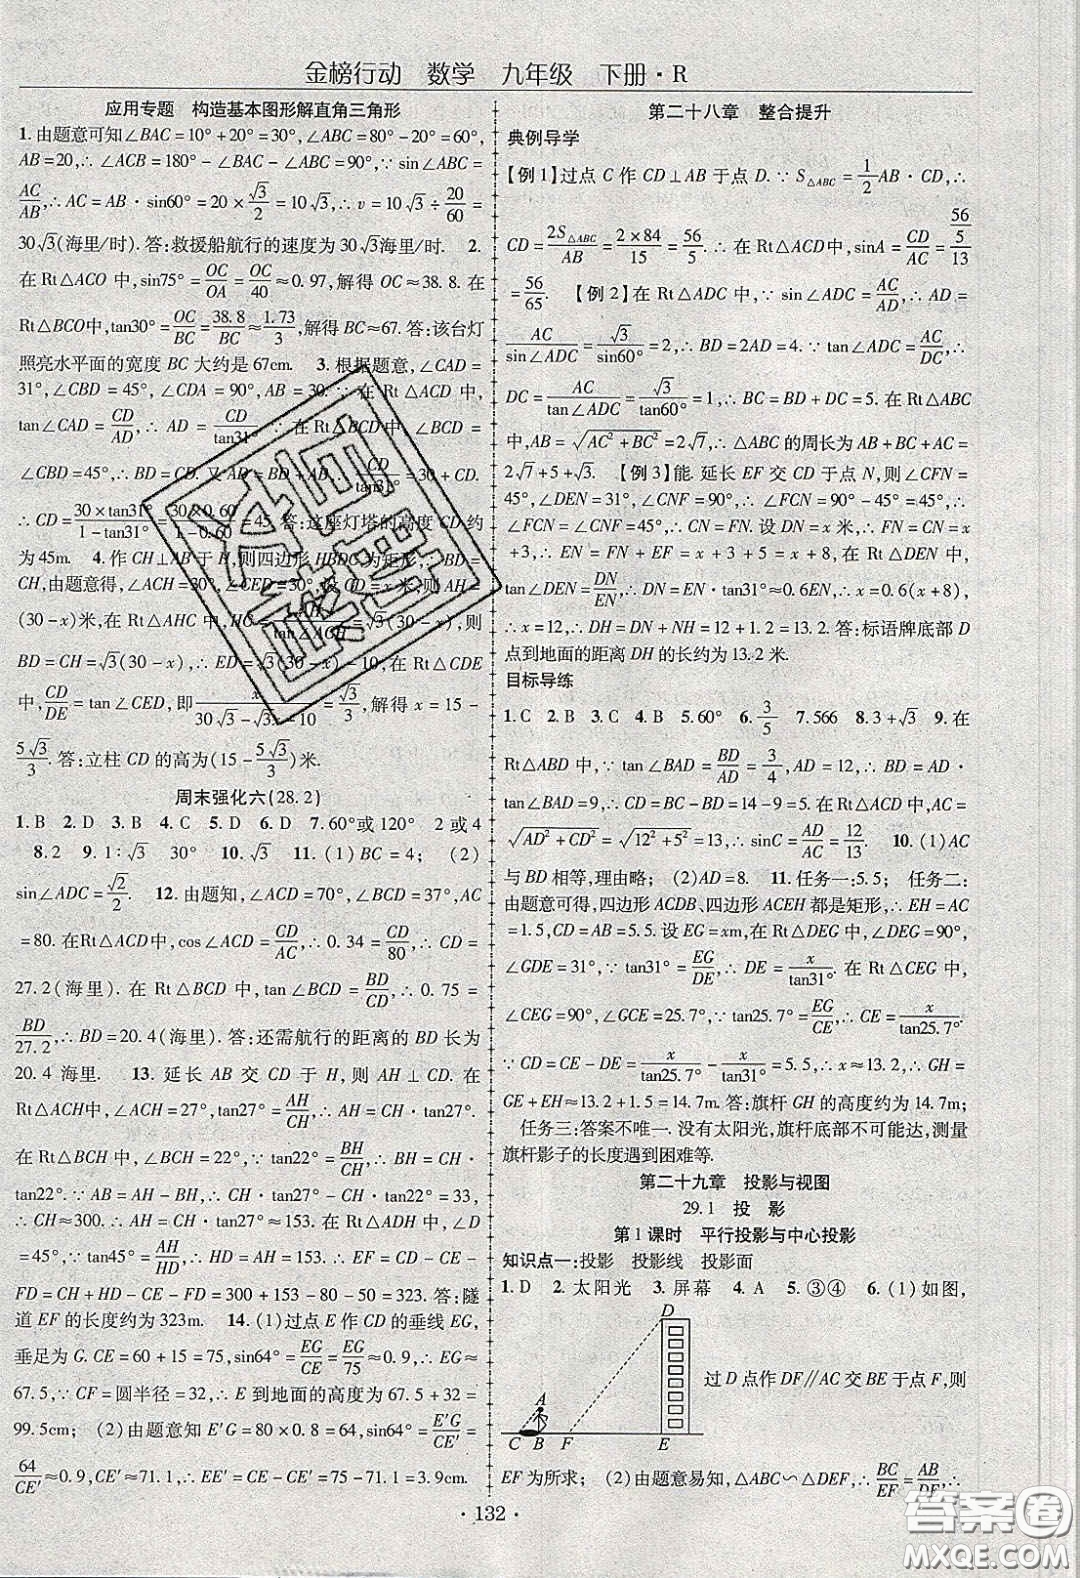 金榜行动 数学 九年级 下册·R
应用专题 构造基本图形解直角三角形
1.由题意可知∠BAC=10°+20°=30°,∠ABC=80°-20°=60°,
AB=20,∴∠ACB=180°-∠BAC-∠ABC=90°.∵sin∠ABC=
AC/AB,∴AC=AB·sin60°=20×√3/2=10√3,∴v=10√3÷20/60=
30√3(海里/时).答:救援船航行的速度为30√3海里/时. 2.
在Rt△ACO中,sin75°=OC/OA=OC/40≈0.97,解得OC≈38.8.在
Rt△BCO中,tan30°=OC/BC=38.8/BC≈1.73/3,解得BC≈67.答:该台灯
照亮水平面的宽度BC大约是67cm. 3.根据题意,∠CAD=
31°,∠CBD=45°,∠CDA=90°,AB=30.∵在Rt△ACD中,
tan∠CAD=CD/AD,∴AD=CD/tan31°.∵在Rt△BCD中,∠BCD=
∠CBD=45°,∴BD=CD.又AD=BD+AB,∴CD/tan31°=30+CD.
∴CD=30×tan31°/1-tan31°≈30×0.60/1-0.60=45.答:这座灯塔的高度CD约
为45m. 4.作CH⊥AB于H,则四边形HBDC为矩形,∴BD=
CH,由题意得,∠ACH=30°,∠CED=30°,设CD=x米,则AH=
(30-x)米,在Rt△AHC中,HC=AH/tan∠ACH=√3(30-x)米,则
BD=CH=√3(30-x),∴ED=√3(30-x)-10,在Rt△CDE
中,CD/DE=tan∠CED,即x/30√3-√3x-10=√3/3,解得x=15-
5√3/3.答:立柱CD的高为(15-5√3/3)米.
周末强化六(28.2)
1.B 2.D 3.B 4.C 5.D 6.D 7.60°或120° 2或4
8.2 9.1:√3 30° 10.√3 11.(1)BC=4; (2)
sin∠ADC=√2/2. 12.由题知,∠ACD=70°,∠BCD=37°,AC
=80.在Rt△ACD中,cos∠ACD=CD/AC,∴0.34=CD/80,∴CD=
27.2(海里).在Rt△BCD中,tan∠BCD=BD/CD,∴0.75=
BD/27.2,∴BD=20.4(海里).答:还需航行的距离的BD长为
20.4海里. 13.延长AB交CD于H,则AH⊥CD.在
Rt△ACH中,∠ACH=27°,tan27°=AH/CH,∴AH=CH·tan27°.
在Rt△BCH中,∠BCH=22°,tan22°=BH/CH,∴BH=CH·
tan22°.∵AB=AH-BH,∴CH·tan27°-CH·tan22°=33,
∴CH≈300.∴AH=CH·tan27°≈153.在Rt△ADH中,∠D
=45°,∵tan45°=AH/HD,∴HD=AH=153.∴EF=CD-CE-
FD=CH+HD-CE-FD=300+153-80-50=323.答:隧
道EF的长度约为323m. 14.(1)过点E作CD的垂线EG,
垂足为G.CE=60+15=75,sin64°=EG/CE=EG/75≈0.9,∴EG≈
67.5,∵CF=圆半径=32,∴E到地面的高度为67.5+32=
99.5cm; (2)由题意知E'G=80×0.8=64,sin64°=E'G/CE'=
64/CE'≈0.9,∴CE'≈71.1,∴EE'=CE-CE'=75-71.1=3.9cm.
第二十八章 整合提升
典例导学
【例1】过点C作CD⊥AB于点D.∵S△ABC=1/2AB·CD,∴
CD=2S△ABC/AB=2×84/15=56/5.∴在Rt△ACD中,sinA=CD/AC=56/5/13
=56/65. 【例2】在Rt△ADC中,∵sin∠ADC=AC/AD,∴AD=
AC/sin∠ADC=√3/sin60°=2.∴BD=2AD=4.∵tan∠ADC=AC/DC,∴
DC=AC/tan∠ADC=√3/tan60°=1,∴BC=BD+DC=5.在Rt△ABC
中,AB=√AC²+BC²=2√7,∴△ABC的周长为AB+BC+AC=
2√7+5+√3. 【例3】能.延长EF交CD于点N,则∠CFN=
45°,∠DEN=31°.∵∠CNF=90°,∴∠FCN=90°-45°=45°,∴
∠FCN=∠CFN=45°,∴FN=CN.设DN=x米,∴FN=CN=x
+3,∴EN=FN+EF=x+3+5=x+8,∴在Rt△DEN中,
tan∠DEN=DN/EN,∴DN=EN·tan31°≈0.6EN,∴x=0.6(x+8),
∴x=12,∴DH=DN+NH=12+1.2=13.2.答:标语牌底部D
点到地面的距离DH的长约为13.2米.
目标导练
1.C 2.B 3.C 4.B 5.60° 6.3/5 7.566 8.3+√3 9.在
Rt△ABD中,∵tan∠BAD=BD/AD=3/4,AD=12,∴BD=AD·
tan∠BAD=9,∴CD=BC-BD=14-9=5.在Rt△ADC中,AC=
√AD²+CD²=√12²+5²=13,∴sinC=AD/AC=12/13. 10.(1)AC
与BD相等,理由略; (2)AD=8. 11.任务一:5.5; 任务二:
由题意可得,四边形ACDB、四边形ACEH都是矩形,∴EH=AC
=1.5,CD=AB=5.5.设EG=xm,在Rt△DEG中,∠DEG=90°,
∠GDE=31°,∵tan31°=EG/DE,∴DE=x/tan31°.在Rt△CEG中,
∠CEG=90°,∠GCE=25.7°,∵tan25.7°=EG/CE,CE=x/tan25.7°.
∵CD=CE-DE=x/tan25.7°-x/tan31°=5.5,∴x≈13.2,∴GH=
GE+EH≈13.2+1.5=14.7m.答:旗杆GH的高度约为14.7m;
任务三:答案不唯一.没有太阳光,旗杆底部不可能达,测量
旗杆影子的长度遇到困难等.
第二十九章 投影与视图
29.1 投 影
第1课时 平行投影与中心投影
知识点一:投影 投影线 投影面
1.D 2.太阳光 3.屏幕 4.A 5.③④ 6.(1)如图,
D
A
C B F E
过D点作DF∥AC交BE于点F,则
EF为所求; (2)由题意易知,△ABC∽△DEF,∴BC/EF=AB/DE,∴
·132·
答案圈
MXQE.COM